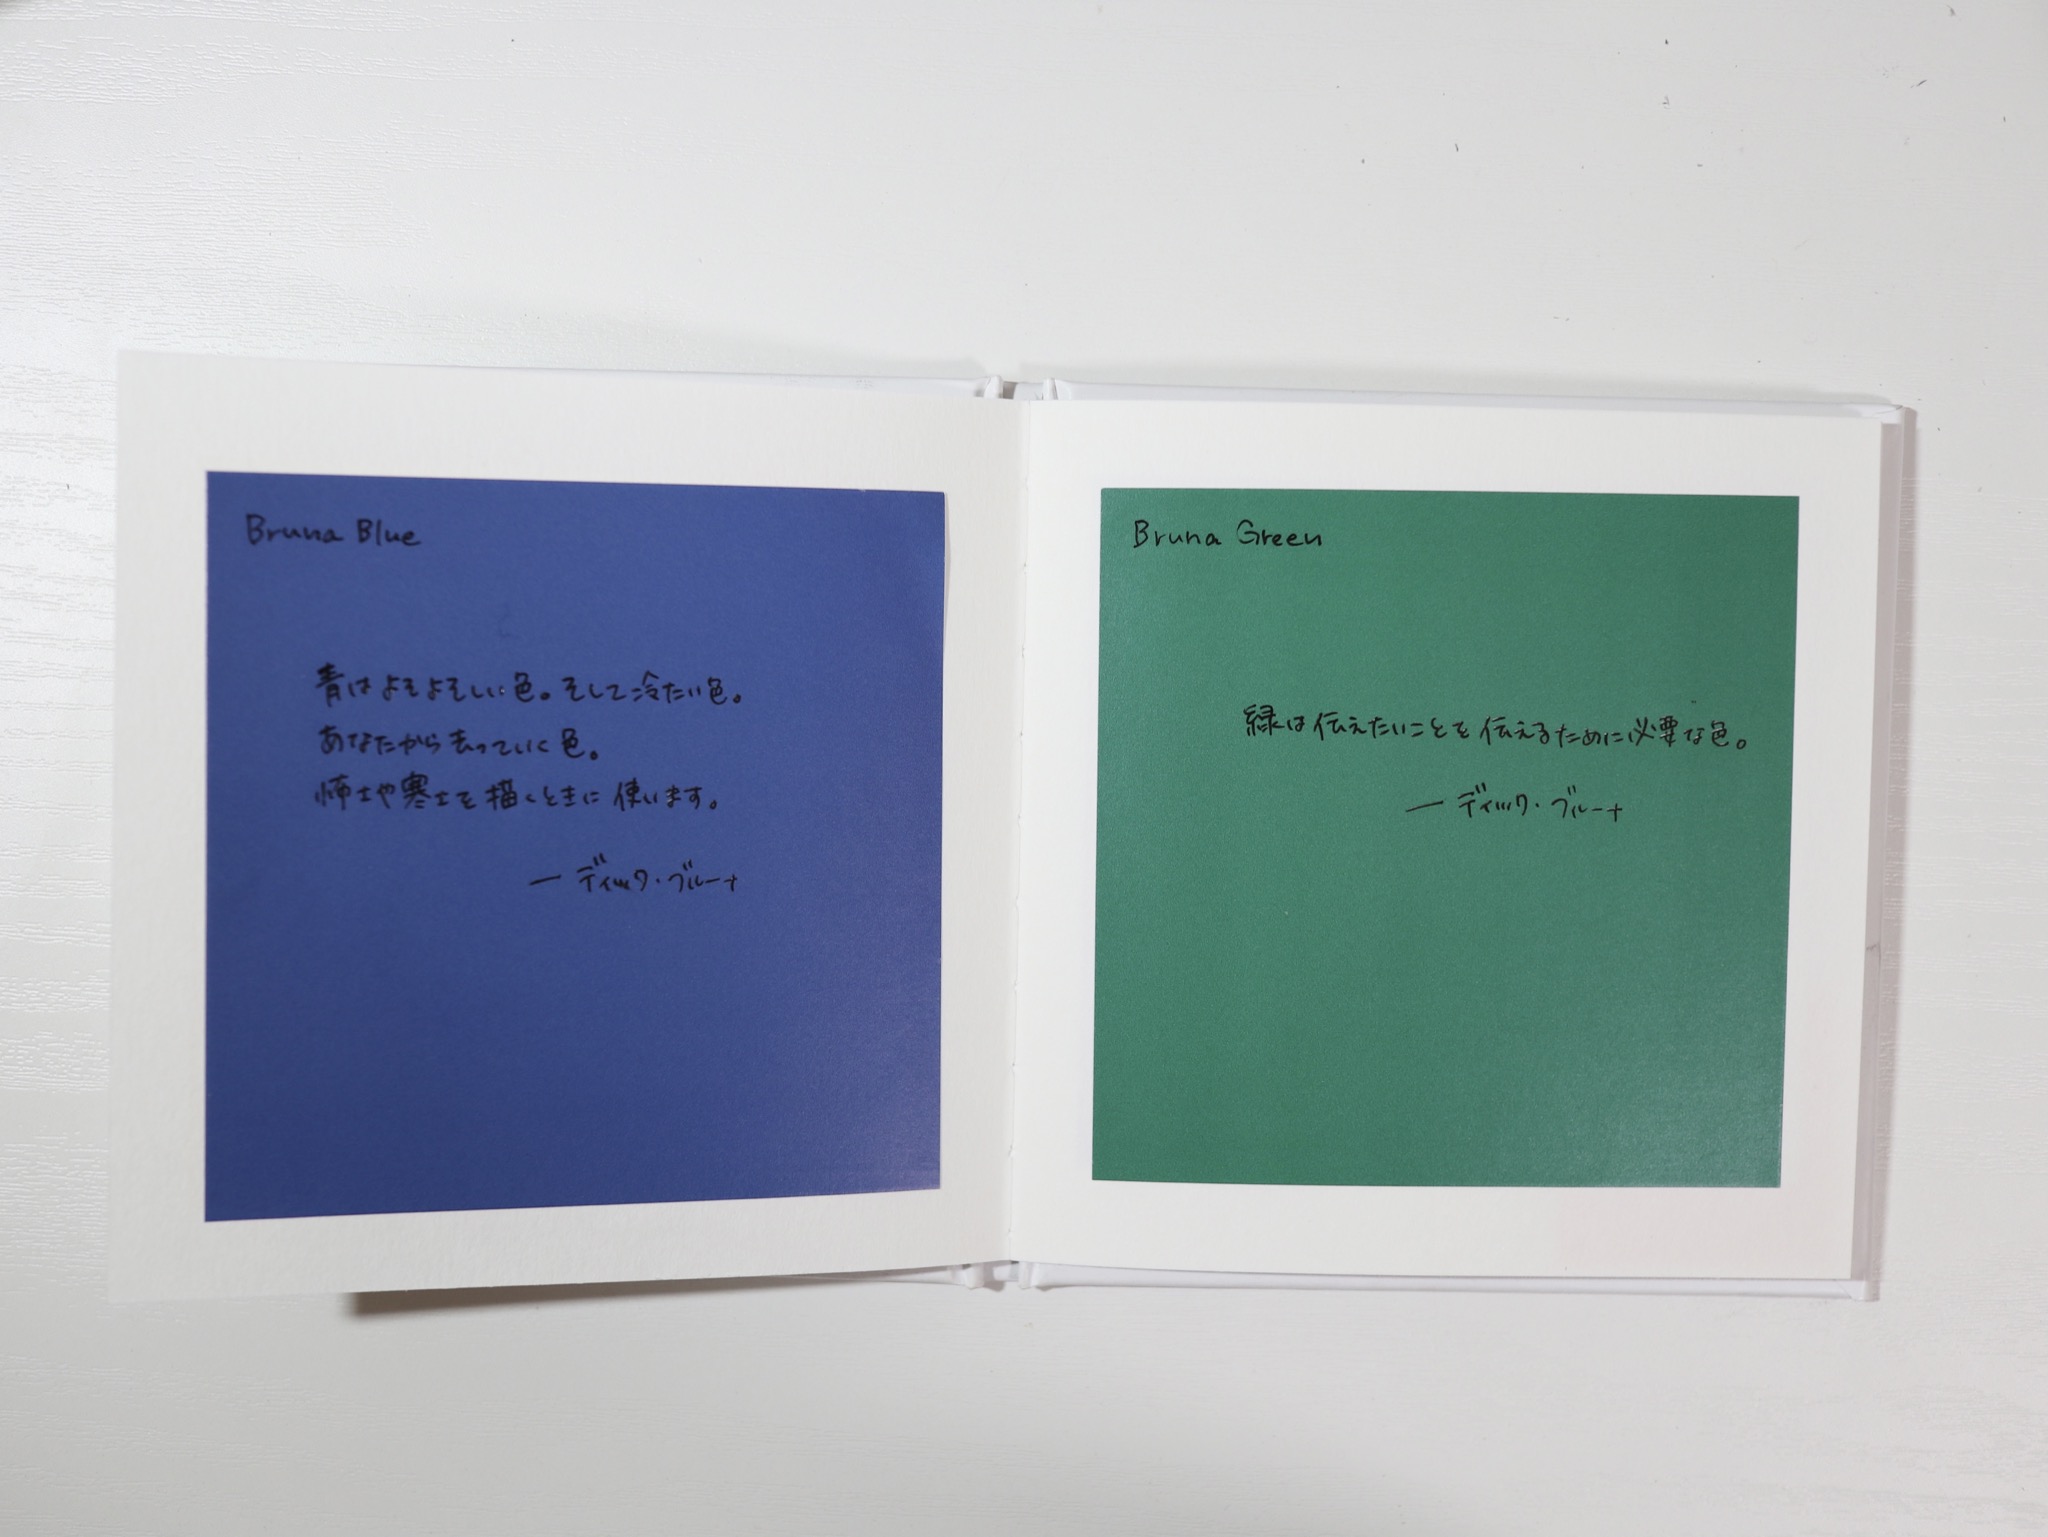 Bruna Blue
青はよそよそしい色。そして冷たい色。
あなたから去っていく色。
怖さや寒さを描くときに使います。
— ディック・ブルーナ
Bruna Green
緑は伝えたいことを伝えるために必要な色。
— ディック・ブルーナ